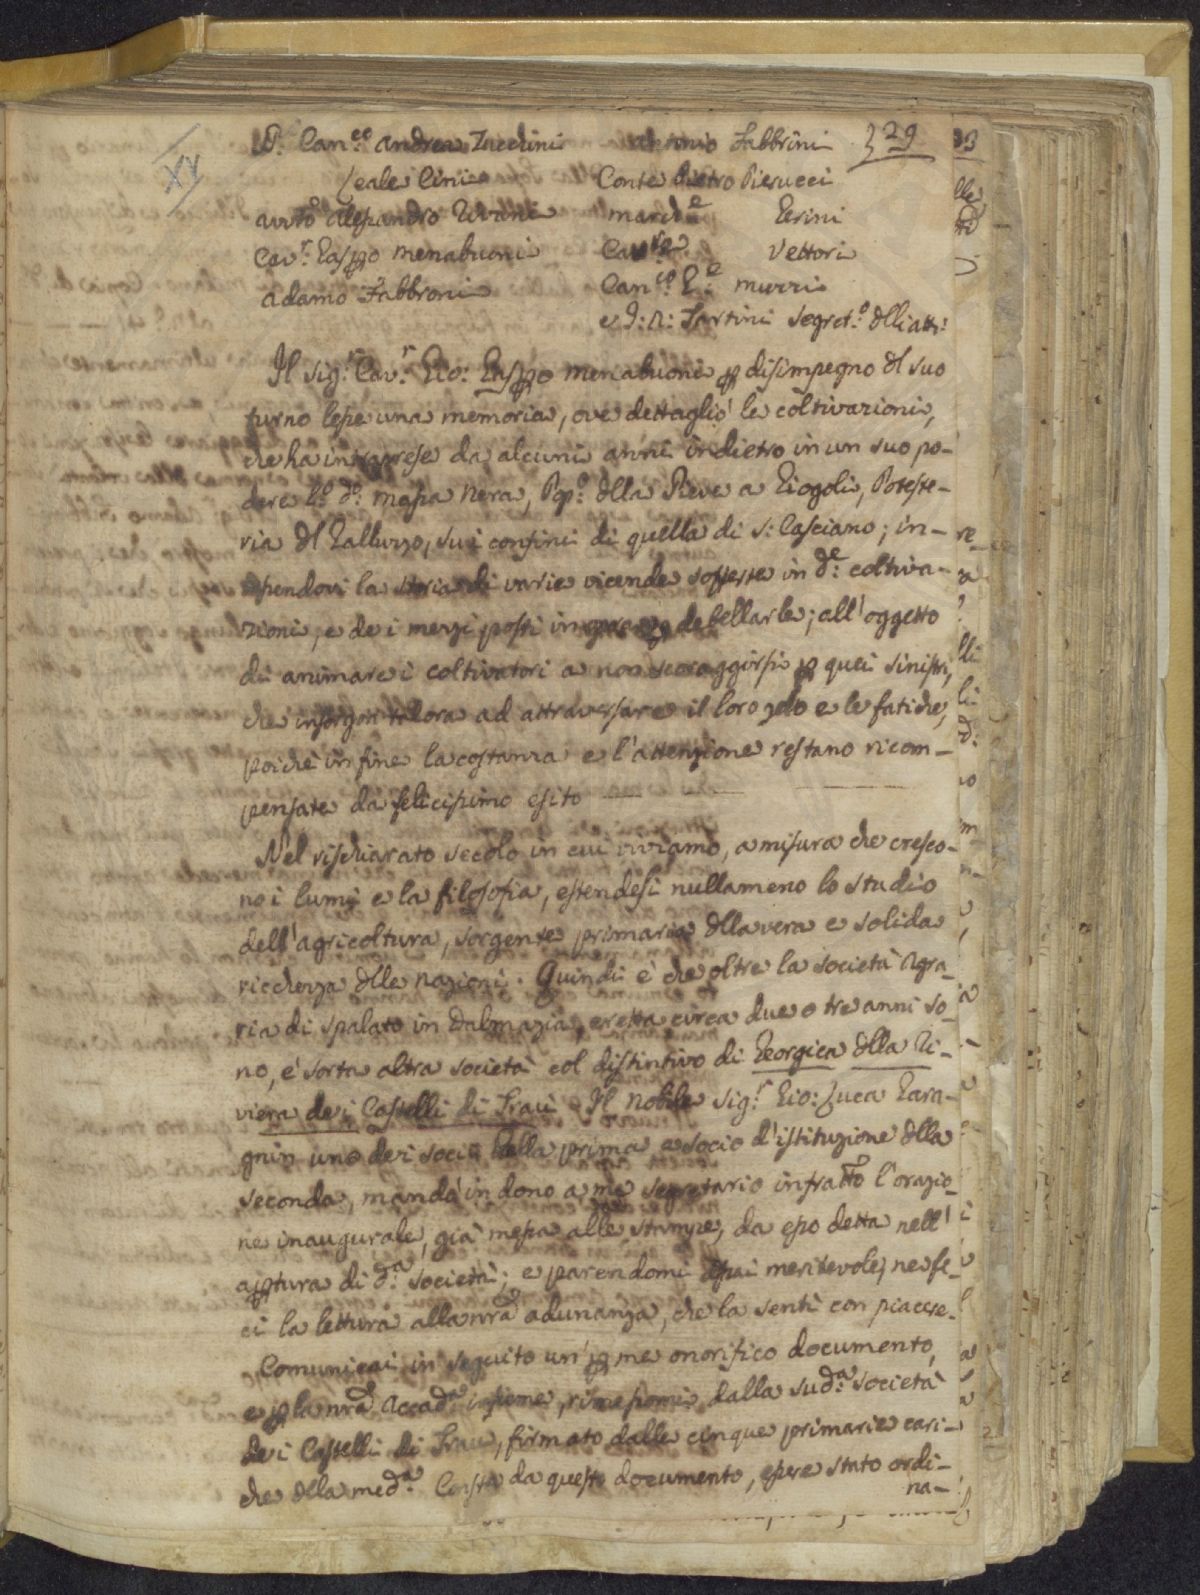 D. Can.co Andrea Zucchini Antonio Fabbrini 329
Leale Cini Conte Pietro Pierucci
Avv.to Alessandro Rivani March.e Gerini
Cav.r Gaspero Menabuoni Cav.re Vettori
Adamo Fabbroni Can.co G.e
e D: A: Sartini Segret.o dlli atti.
XV
Il Sig.r Cav.r Gio: Gaspero Menabuoni p disimpegno dl suo
turno lesse una memoria, ove dettagliò le coltivazioni,
che ha intraprese da alcuni anni indietro in un suo po-
dere l.o d.o Massa Nera, Pop.o dlla Pieve a Giogoli, Poteste-
ria dl Galluzzo, su i confini di quella di S: Casciano; in-
tessendovi la storia di varie vicende sofferte in d.e coltiva-
zioni, e dei mezzi posti in opera p debellarle; all'oggetto
di animare i coltivatori a non scoraggirsi p quei sinistri,
che insorgon talora ad attraversare il loro zelo e le fatiche,
poichè in fine la costanza e l'attenzione restano ricom-
pensate da felicissimo esito
Nel rischiarato secolo in cui viviamo, a misura che cresco-
no i lumi e la filosofia, estendesi nullameno lo studio
dell'agricoltura, sorgente primaria dlla vera e solida
ricchezza dlle nazioni. Quindi è che oltre la società Agra-
ria di Spalato in Dalmazia, eretta circa due o tre anni so-
no, è sorta altra società col distintivo di Georgica dlla Ri-
viera dei Castelli di Traù. Il Nobile Sig.r Gio: Luca Gara-
gnin uno dei socii della prima e socio d'istituzione dlla
seconda, mandò in dono a me segretario infratto l'orazio-
ne inaugurale, già messa alle stampe, da esso detta nell'
aptura di d.a società; e parendomi assai meritevole, ne fe-
ci la lettura alla nra adunanza, che la sentì con piacere.
Comunicai in seguito un' p me onorifico documento,
e p la nra Accad.a insieme, rimessomi dalla sud.a società
dei Castelli di Traù, firmato dalle cinque primarie cari-
che dlla med.a Consta da questo documento, essere stato ordi-
na-